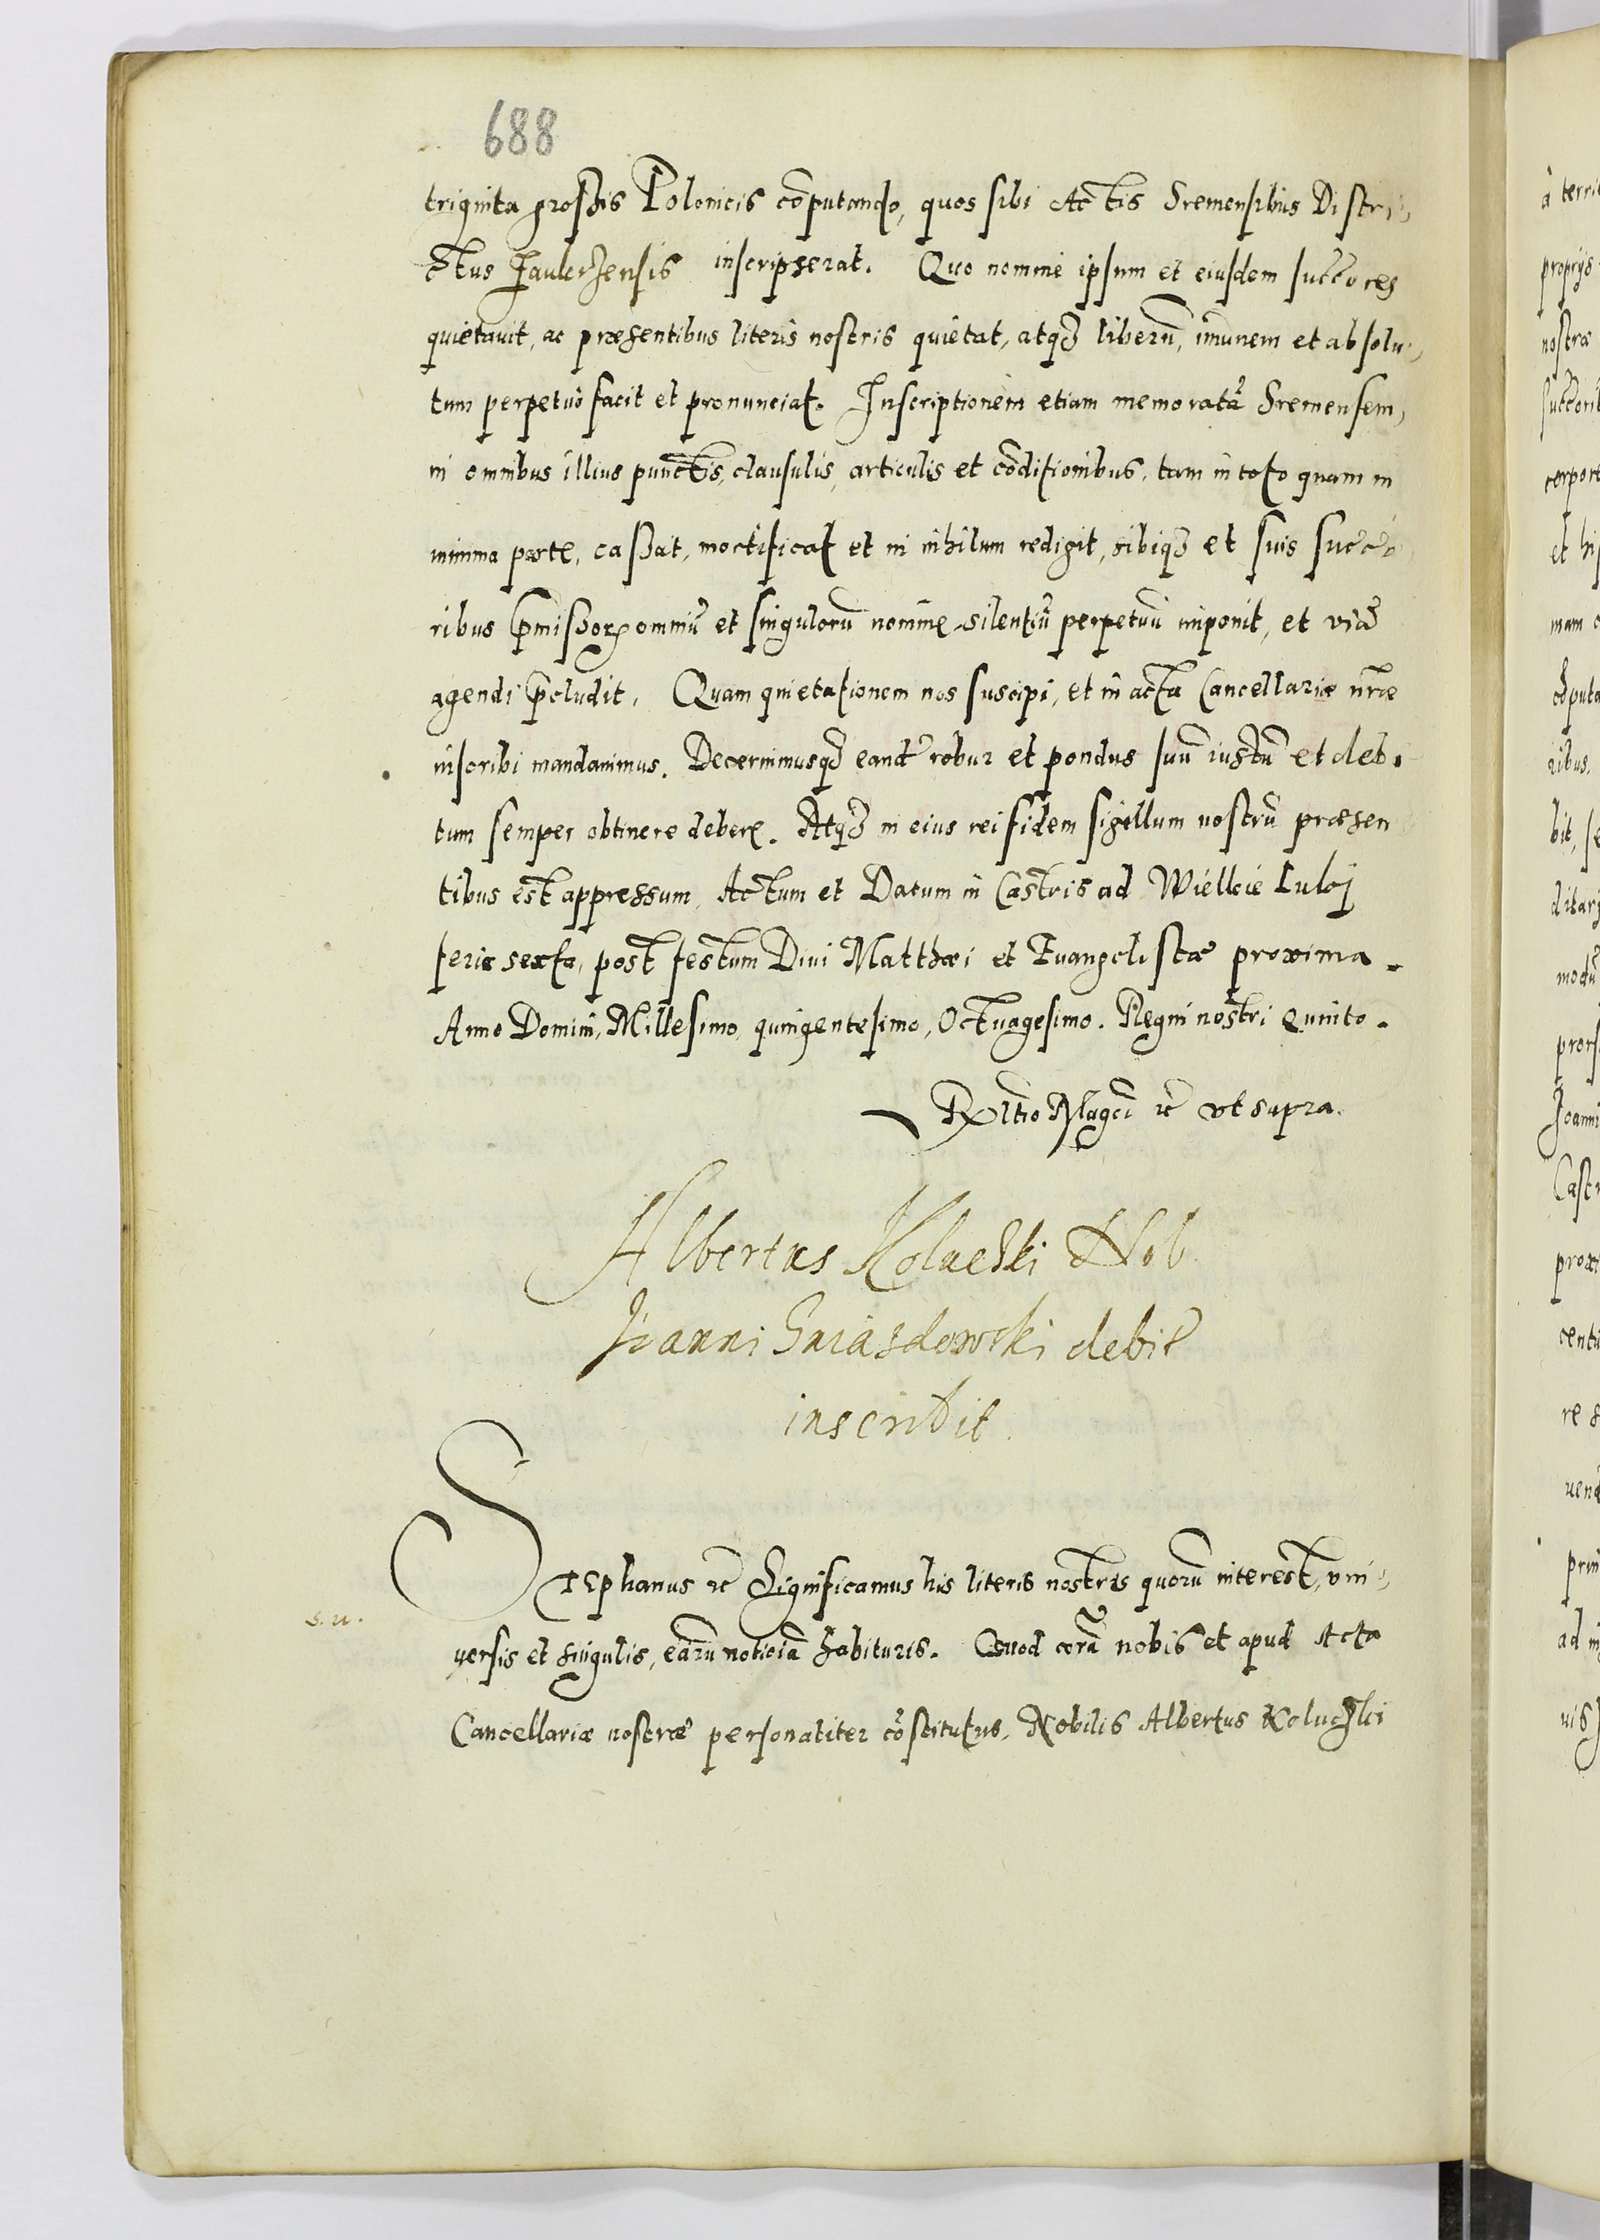 688
triginta grossis Polonicis cõputando, quos sibi Actis Sremensibus Distri-
ctus inscripserat. Quo nomine ipsum et eiusdem succores
quietauit, ac præsentibus literis nostris quietat, atqȝ liberũ, imunem et absolu-
tum perpetuo facit et pronunciat. Inscriptionem etiam memoratã Sremensem,
in omnibus illius punctis, clausulis, articulis et cõditionibus, tam in toto quam in
minima parte, cassat, mortificat et in nihilum redigit, sibiqȝ et suis succo
ribus p̃missorꝝ omniũ et singulorũ nomine silentiũ perpetuũ imponit, et viã
agendi p̃cludit. Quam quietationem nos suscipi, et in acta Cancellariæ nr̃æ
inscribi mandauimus. Decernimusqȝ eandẽ robur et pondus suũ iustũ et debi
tum semper obtinere debere. Atqȝ in eius rei fidem sigillum nostrũ præsen
tibus est appressum. Actum et Datum in Castris ad Wielkie Luki
feria sexta, post festum Diui Matthæi et Euangelistæ proxima.
Anno Domini, Millesimo, quingentesimo, Octuagesimo. Regni nostri Quinto.
Rltio Magci ꝛc vt supra.
Albertus Koluchki Nob.
Ioanni Gniasdowski debit
inscribit.
Stephanus ꝛc Significamus his literis nostris quorũ interest, vni-
s. u.
uersis et singulis, earũ noticiã habituris. Quod corã nobis et apud Acta
Cancellariæ nostræ personaliter cõstitutus, Nobilis Albertus Koluchki